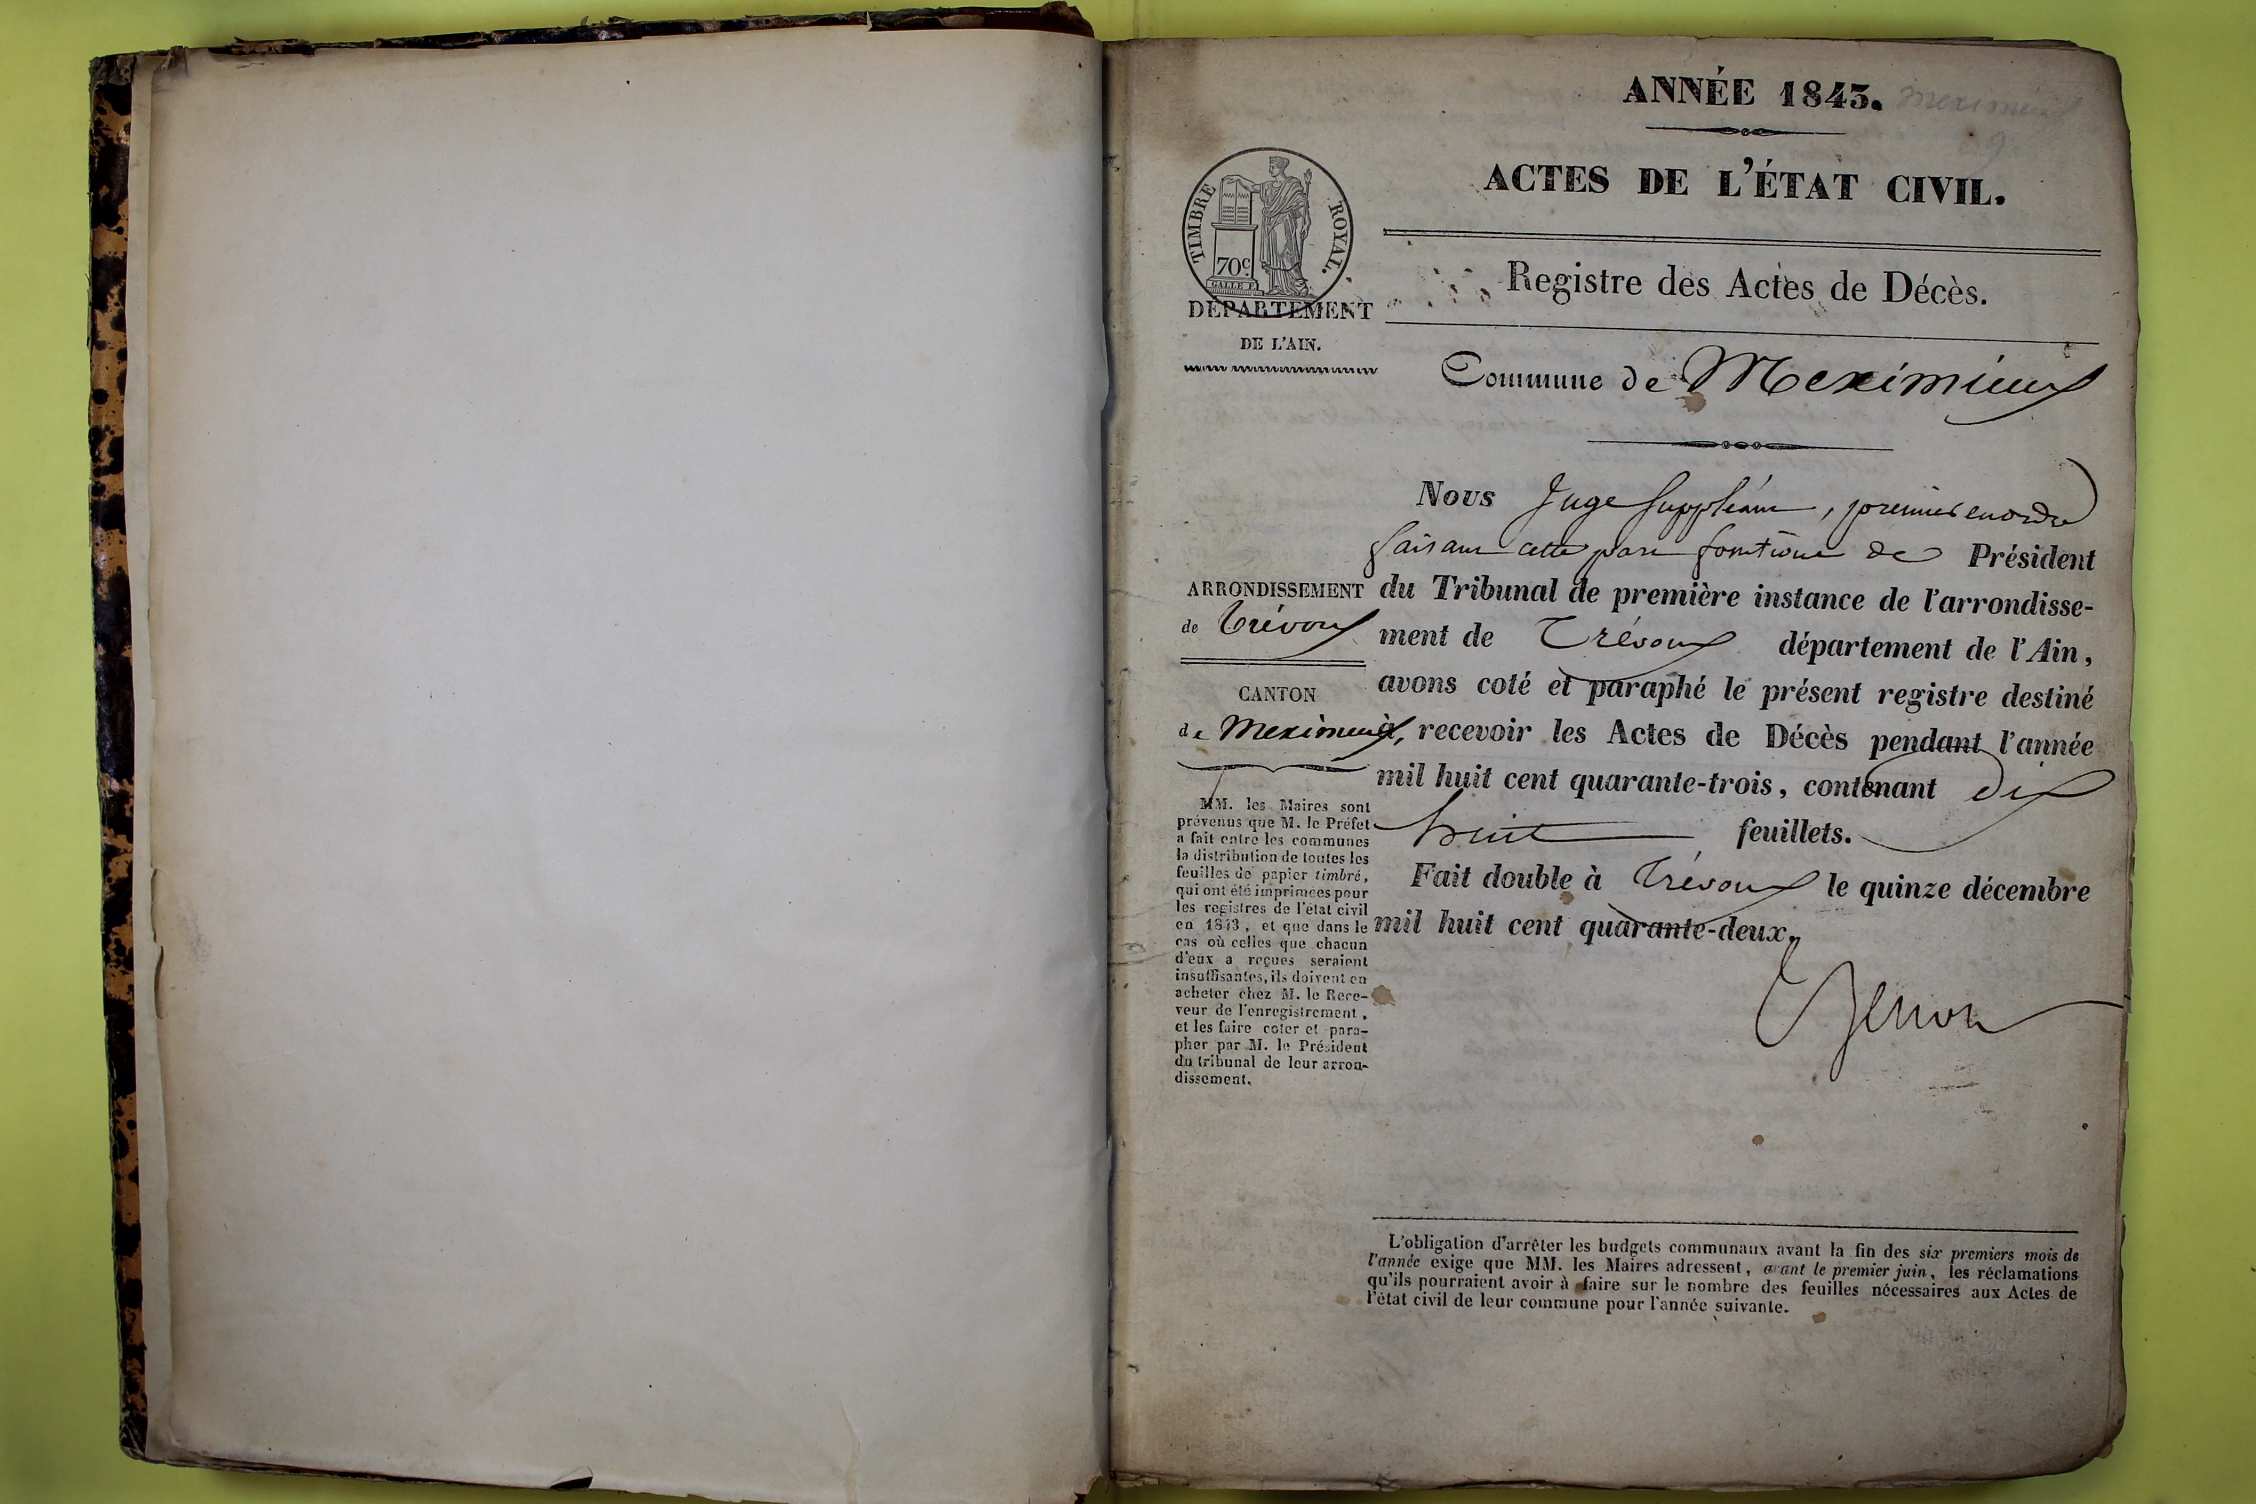 ANNÉE 1843. Meximieux
9
ACTES DE L'ÉTAT CIVIL.
TIMBRE ROYAL.
70c
GALLE F.
DÉPARTEMENT
DE L'AIN.
Registre des Actes de Décès.
Commune de Meximieux
Nous Juge Suppléant, premier en ordre
faisant cette part fonctions de Président
du Tribunal de première instance de l'arrondisse-
ment de Trévoux département de l'Ain,
avons coté et paraphé le présent registre destiné
à recevoir les Actes de Décès pendant l'année
mil huit cent quarante-trois, contenant dix
huit feuillets.
Fait double à Trévoux le quinze décembre
mil huit cent quarante-deux.
ARRONDISSEMENT
de Trévoux
CANTON
de Meximieux,
MM. les Maires sont
prévenus que M. le Préfet
a fait entre les communes
la distribution de toutes les
feuilles de papier timbré,
qui ont été imprimées pour
les registres de l'état civil
en 1843, et que dans le
cas où celles que chacun
d'eux a reçues seraient
insuffisantes, ils doivent en
acheter chez M. le Rece-
veur de l'enregistrement,
et les faire coter et para-
pher par M. le Président
du tribunal de leur arron-
dissement.
L'obligation d'arrêter les budgets communaux avant la fin des six premiers mois de
l'année exige que MM. les Maires adressent, avant le premier juin, les réclamations
qu'ils pourraient avoir à faire sur le nombre des feuilles nécessaires aux Actes de
l'état civil de leur commune pour l'année suivante.